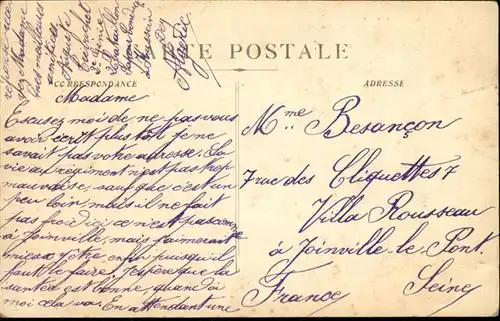 CARTE POSTALE
CORRESPONDANCE
ADRESSE
Madame
Escusez moi de ne pas vous
avoir écrit plus tôt je ne
savait pas votre adresse. La
vie au régiment n'est pas trop
mauvaise, sauf que c'est un
peu loin, mais il ne fait
pas froid ici ce n'est pas comme
à Joinville, mais j'aimerait
mieux y être enfin puisqu'il
faut le faire, j'espère que la
santée est bonne, quand à
moi cela va. En attendant une
réponse
Madame
mes meilleures
amitiés
Auguste
Bataillon
Algérie
Mme Besançon
7 rue des Cliquettes 7
Villa Rousseau
à Joinville-le-Pont
Seine
France